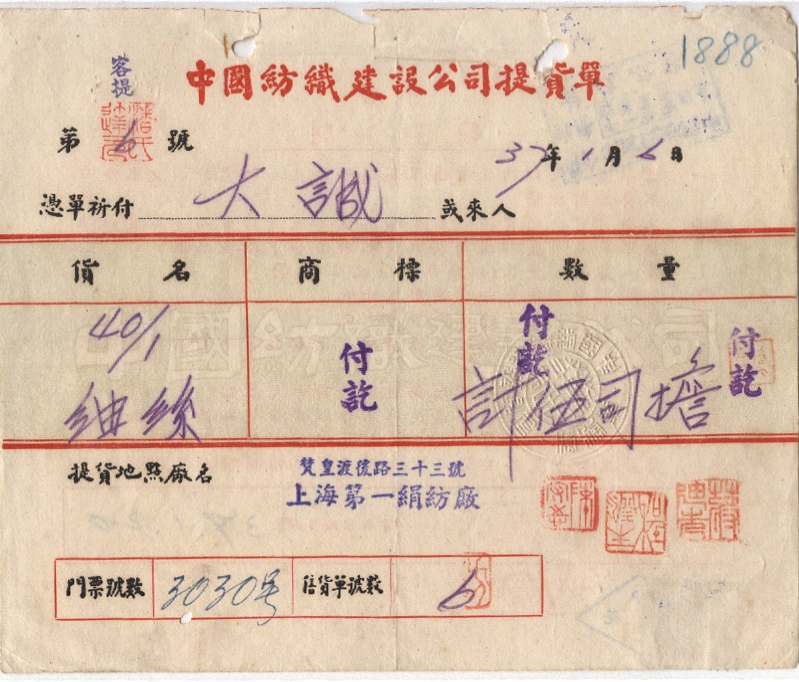 1888
客提
中國紡織建設公司提貨單
第 6 號
37年1月6日
憑單祈付 大誠 或來人
貨名 商標 數量
40/1
紬絲
計伍司擔
付訖
付訖
付訖
提貨地點廠名
梵皇渡後路三十三號
上海第一絹紡廠
門票號數 3030号 售貨單號數 6